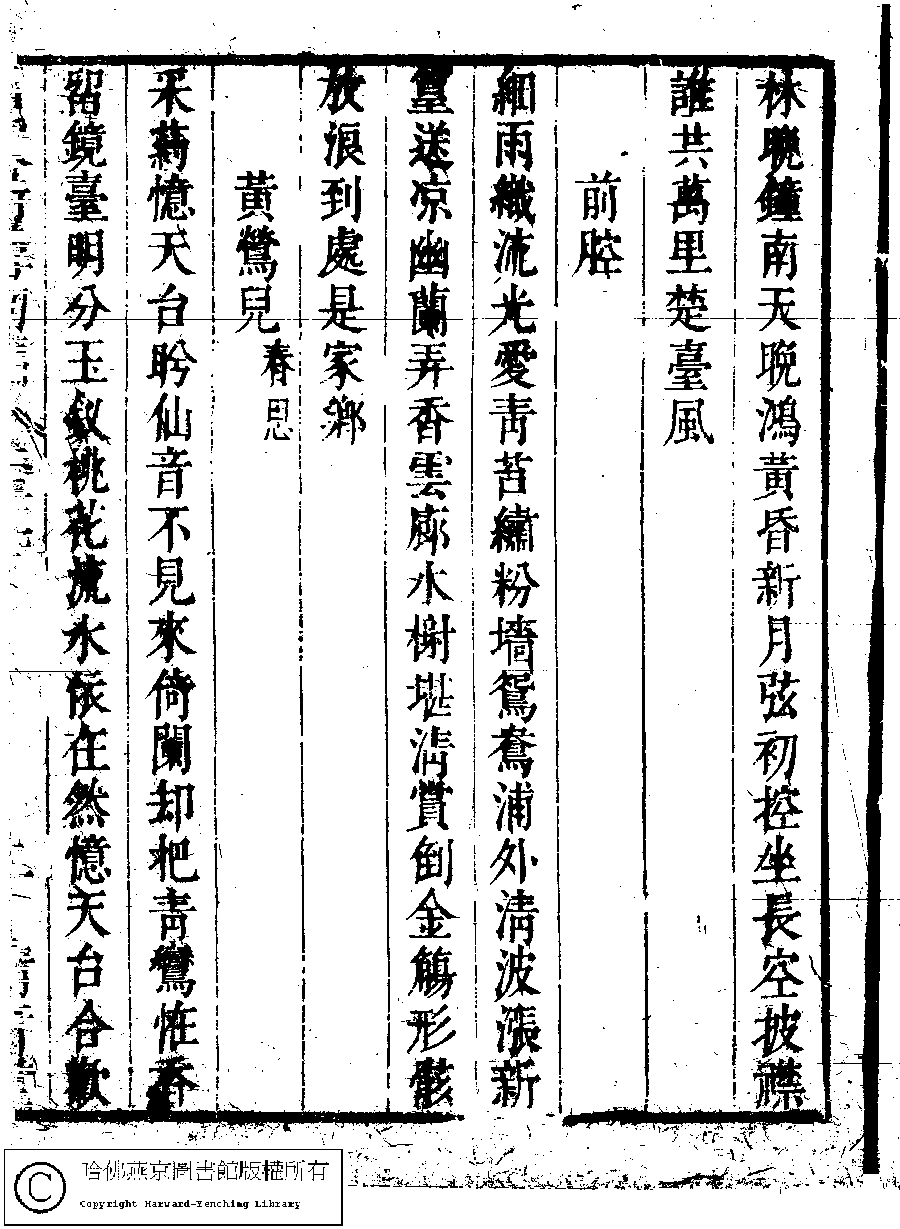 林曉鐘南天晚鴻黃昏新月弦初控坐長空披襟
誰共萬里楚臺風
前腔
細雨纖流光愛青苔繡粉墻鴛鴦浦外清波漲新
篁送凉幽蘭弄香雲廊水榭堪淸賞倒金觴形骸
放浪到處是家鄉
黃鶯兒 春思
采藥憶天台盻仙音不見來倚闌却把青鸞恠香
留鏡臺明分玉釵桃花流水依在然憶天台合歡
哈佛燕京圖書館版權所有
Copyright Harvard-Yenching Library